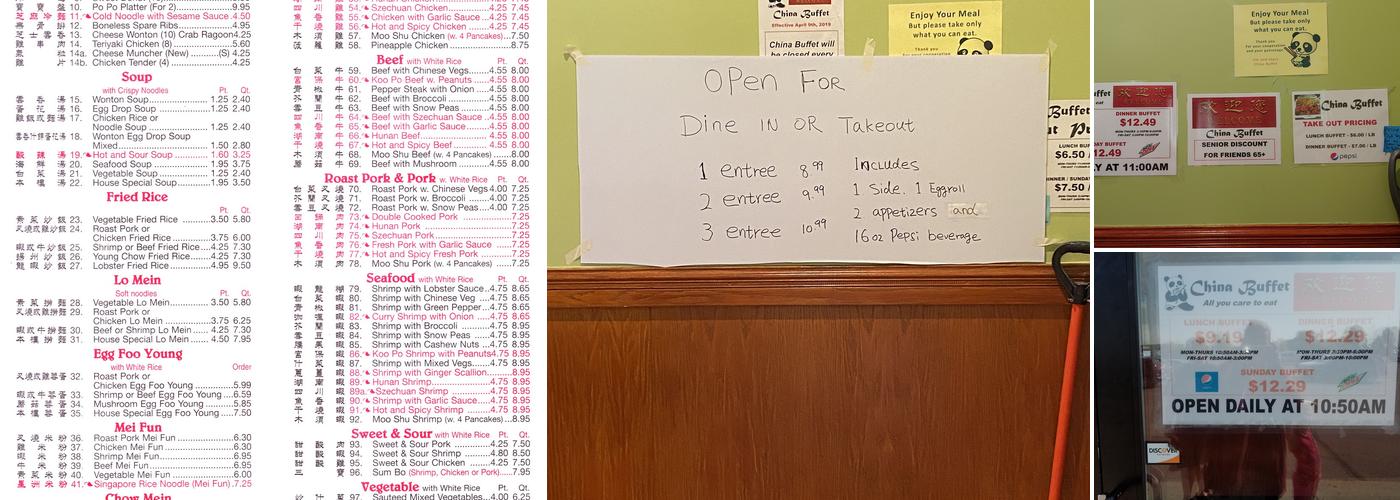 寶 寶 盤 10. Po Po Platter (For 2) 9.95
芝麻冷麵 11. Cold Noodle with Sesame Sauce .4.50
無骨排 12. Boneless Spare Ribs 4.95
芝士雲吞 13. Cheese Wonton (10) Crab Ragoon 4.25
雞串肉 14. Teriyaki Chicken (8) 5.60
14a. Cheese Muncher (New) (S) 4.25
雞片 14b. Chicken Tender (4) 4.25
Soup
with Crispy Noodles Pt. Qt.
雲吞湯 15. Wonton Soup 1.25 2.40
蛋花湯 16. Egg Drop Soup 1.25 2.40
雞飯或麵湯 17. Chicken Rice or
Noodle Soup 1.25 2.40
雲吞汁餅蛋花湯 18. Wonton Egg Drop Soup
Mixed 1.50 2.80
酸辣湯 19. Hot and Sour Soup 1.60 3.25
海鮮湯 20. Seafood Soup 1.95 3.75
白菜湯 21. Vegetable Soup 1.25 2.40
本樓湯 22. House Special Soup 1.95 3.50
Fried Rice
Pt. Qt.
青菜炒飯 23. Vegetable Fried Rice 3.50 5.80
叉燒或雞炒飯 24. Roast Pork or
Chicken Fried Rice 3.75 6.00
蝦或牛炒飯 25. Shrimp or Beef Fried Rice 4.25 7.30
揚州炒飯 26. Young Chow Fried Rice 4.25 7.30
龍蝦炒飯 27. Lobster Fried Rice 4.95 9.50
Lo Mein
Soft noodles Pt. Qt.
青菜撈麵 28. Vegetable Lo Mein 3.50 5.80
叉燒或雞撈麵 29. Roast Pork or
Chicken Lo Mein 3.75 6.25
蝦或牛撈麵 30. Beef or Shrimp Lo Mein 4.25 7.30
本樓撈麵 31. House Special Lo Mein 4.50 7.95
Egg Foo Young
with White Rice Order
叉燒或雞蓉蛋 32. Roast Pork or
Chicken Egg Foo Young 5.99
蝦或牛蓉蛋 33. Shrimp or Beef Egg Foo Young 6.59
蘑菇蓉蛋 34. Mushroom Egg Foo Young 5.85
本樓蓉蛋 35. House Special Egg Foo Young 7.50
Mei Fun
叉燒米粉 36. Roast Pork Mei Fun 6.30
雞米粉 37. Chicken Mei Fun 6.30
蝦米粉 38. Shrimp Mei Fun 6.95
牛米粉 39. Beef Mei Fun 6.95
青菜米粉 40. Vegetable Mei Fun 6.00
星洲米粉 41. Singapore Rice Noodle (Mei Fun) .7.25
Chow Mein
四川雞 54. Szechuan Chicken 4.25 7.45
魚香雞 55. Chicken with Garlic Sauce 4.25 7.45
干燒雞 56. Hot and Spicy Chicken 4.25 7.45
木須雞 57. Moo Shu Chicken (w. 4 Pancakes) 7.50
菠蘿雞 58. Pineapple Chicken 8.75
Beef with White Rice Pt. Qt.
白菜牛 59. Beef with Chinese Vegs. 4.55 8.00
宮保牛 60. Koo Po Beef w. Peanuts 4.55 8.00
青椒牛 61. Pepper Steak with Onion 4.55 8.00
芥蘭牛 62. Beef with Broccoli 4.55 8.00
雪豆牛 63. Beef with Snow Peas 4.55 8.00
四川牛 64. Beef with Szechuan Sauce 4.55 8.00
魚香牛 65. Beef with Garlic Sauce 4.55 8.00
湖南牛 66. Hunan Beef 4.55 8.00
干燒牛 67. Hot and Spicy Beef 4.55 8.00
木須牛 68. Moo Shu Beef (w. 4 Pancakes) 8.00
蘑菇牛 69. Beef with Mushroom 4.55 8.00
Roast Pork & Pork w. White Rice Pt. Qt.
白菜叉燒 70. Roast Pork w. Chinese Vegs 4.00 7.25
芥蘭叉燒 71. Roast Pork w. Broccoli 4.00 7.25
雪豆叉燒 72. Roast Pork w. Snow Peas 4.00 7.25
回鍋肉 73. Double Cooked Pork 7.25
湖南肉 74. Hunan Pork 7.25
四川肉 75. Szechuan Pork 7.25
魚香肉 76. Fresh Pork with Garlic Sauce 7.25
干燒肉 77. Hot and Spicy Fresh Pork 7.25
木須肉 78. Moo Shu Pork (w. 4 Pancakes) 7.25
Seafood with White Rice Pt. Qt.
蝦龍糊 79. Shrimp with Lobster Sauce 4.75 8.65
白菜蝦 80. Shrimp with Chinese Veg 4.75 8.65
青椒蝦 81. Shrimp with Green Pepper 4.75 8.65
咖喱蝦 82. Curry Shrimp with Onion 4.75 8.65
芥蘭蝦 83. Shrimp with Broccoli 4.75 8.95
雪豆蝦 84. Shrimp with Snow Peas 4.75 8.95
腰果蝦 85. Shrimp with Cashew Nuts 4.75 8.95
宮保蝦 86. Koo Po Shrimp with Peanuts 4.75 8.95
什菜蝦 87. Shrimp with Mixed Vegs. 4.75 8.95
88. Shrimp with Ginger Scallion 8.95
湖南蝦 89. Hunan Shrimp 4.75 8.95
四川蝦 89a. Szechuan Shrimp 4.75 8.95
魚香蝦 90. Shrimp with Garlic Sauce 4.75 8.95
干燒蝦 91. Hot and Spicy Shrimp 4.75 8.95
木須蝦 92. Moo Shu Shrimp (w. 4 Pancakes) 8.95
Sweet & Sour with White Rice Pt. Qt.
甜酸肉 93. Sweet & Sour Pork 4.25 7.50
甜酸蝦 94. Sweet & Sour Shrimp 4.80 8.50
甜酸雞 95. Sweet & Sour Chicken 4.25 7.50
三寶 96. Sum Bo (Shrimp, Chicken or Pork) 7.95
Vegetable with White Rice Pt. Qt.
炒什菜 97. Sauteed Mixed Vegetables 4.00 6.25
China Buffet
Effective April 9th, 2019
China Buffet will
be closed every
Enjoy Your Meal
But please take only
what you can eat.
Thank you
Open For
Dine IN OR Takeout
1 entree 8.99 Includes
2 entree 9.99 1 Side, 1 Eggroll
3 entree 10.99 2 appetizers and
16oz Pepsi beverage
Buffet
$6.50 /
$7.50 /
Enjoy Your Meal
But please take only
what you can eat.
Thank you
China Buffet
歡迎您
WELCOME
DINNER BUFFET
$12.49
12.49
AT 11:00AM
歡迎您
WELCOME
China Buffet
SENIOR DISCOUNT
FOR FRIENDS 65+
China Buffet
TAKE OUT PRICING
LUNCH BUFFET - $6.00 / LB
DINNER BUFFET - $7.00 / LB
pepsi
China Buffet
All you care to eat
歡迎您
LUNCH BUFFET
$9.19
MON-THURS 10:50AM-3:30PM
FRI-SAT 10:50AM-3:00PM
DINNER BUFFET
$12.29
MON-THURS 3:30PM-8:00PM
FRI-SAT 3:00PM-10:00PM
SUNDAY BUFFET
$12.29
OPEN DAILY AT 10:50AM
DISCOVER